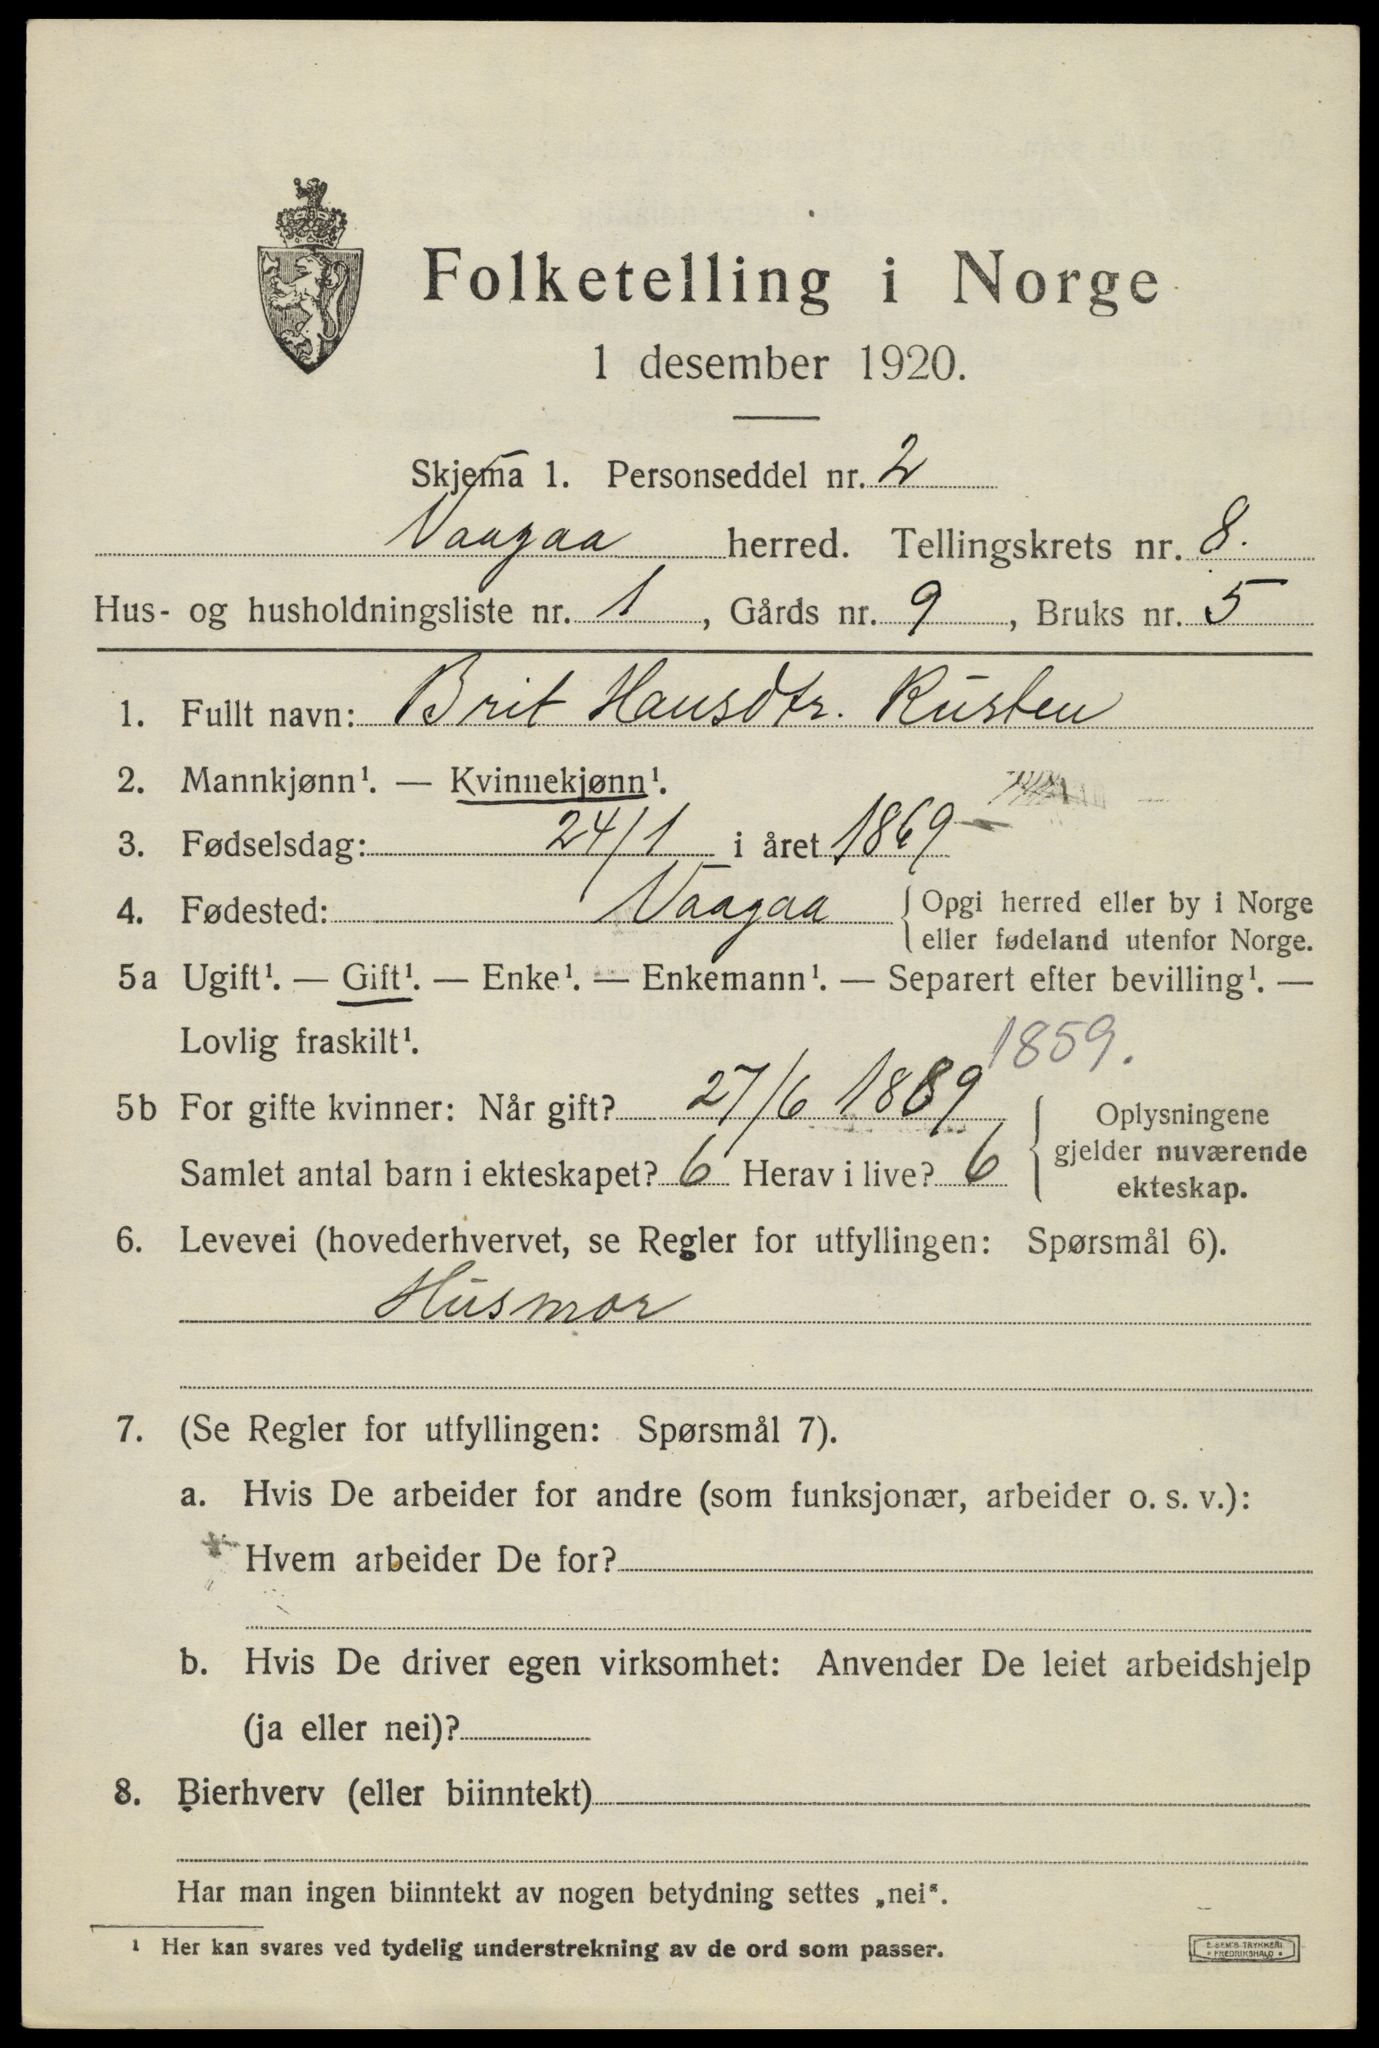 Folketelling i Norge
1 desember 1920.
Skjema 1. Personseddel nr. 2
Vaagaa herred. Tellingskrets nr. 8.
Hus- og husholdningsliste nr. 1, Gårds nr. 9, Bruks nr. 5
1. Fullt navn: Brit Hansdtr. Rusten
2. Mannkjønn¹. — Kvinnekjønn¹.
3. Fødselsdag: 24/1 i året 1869
4. Fødested: Vaagaa { Opgi herred eller by i Norge
eller fødeland utenfor Norge.
5a Ugift¹. — Gift¹. — Enke¹. — Enkemann¹. — Separert efter bevilling¹. —
Lovlig fraskilt¹.
1859.
5b For gifte kvinner: Når gift? 27/6 1889 { Oplysningene
gjelder nuværende
Samlet antal barn i ekteskapet? 6 Herav i live? 6
ekteskap.
6. Levevei (hovederhvervet, se Regler for utfyllingen: Spørsmål 6).
Husmor
7. (Se Regler for utfyllingen: Spørsmål 7).
a. Hvis De arbeider for andre (som funksjonær, arbeider o. s. v.):
Hvem arbeider De for?
b. Hvis De driver egen virksomhet: Anvender De leiet arbeidshjelp
(ja eller nei)?
8. Bierhverv (eller biinntekt)
Har man ingen biinntekt av nogen betydning settes „nei“.
¹ Her kan svares ved tydelig understrekning av de ord som passer.
E. SEM'S TRYKKERI
FREDRIKSHALD